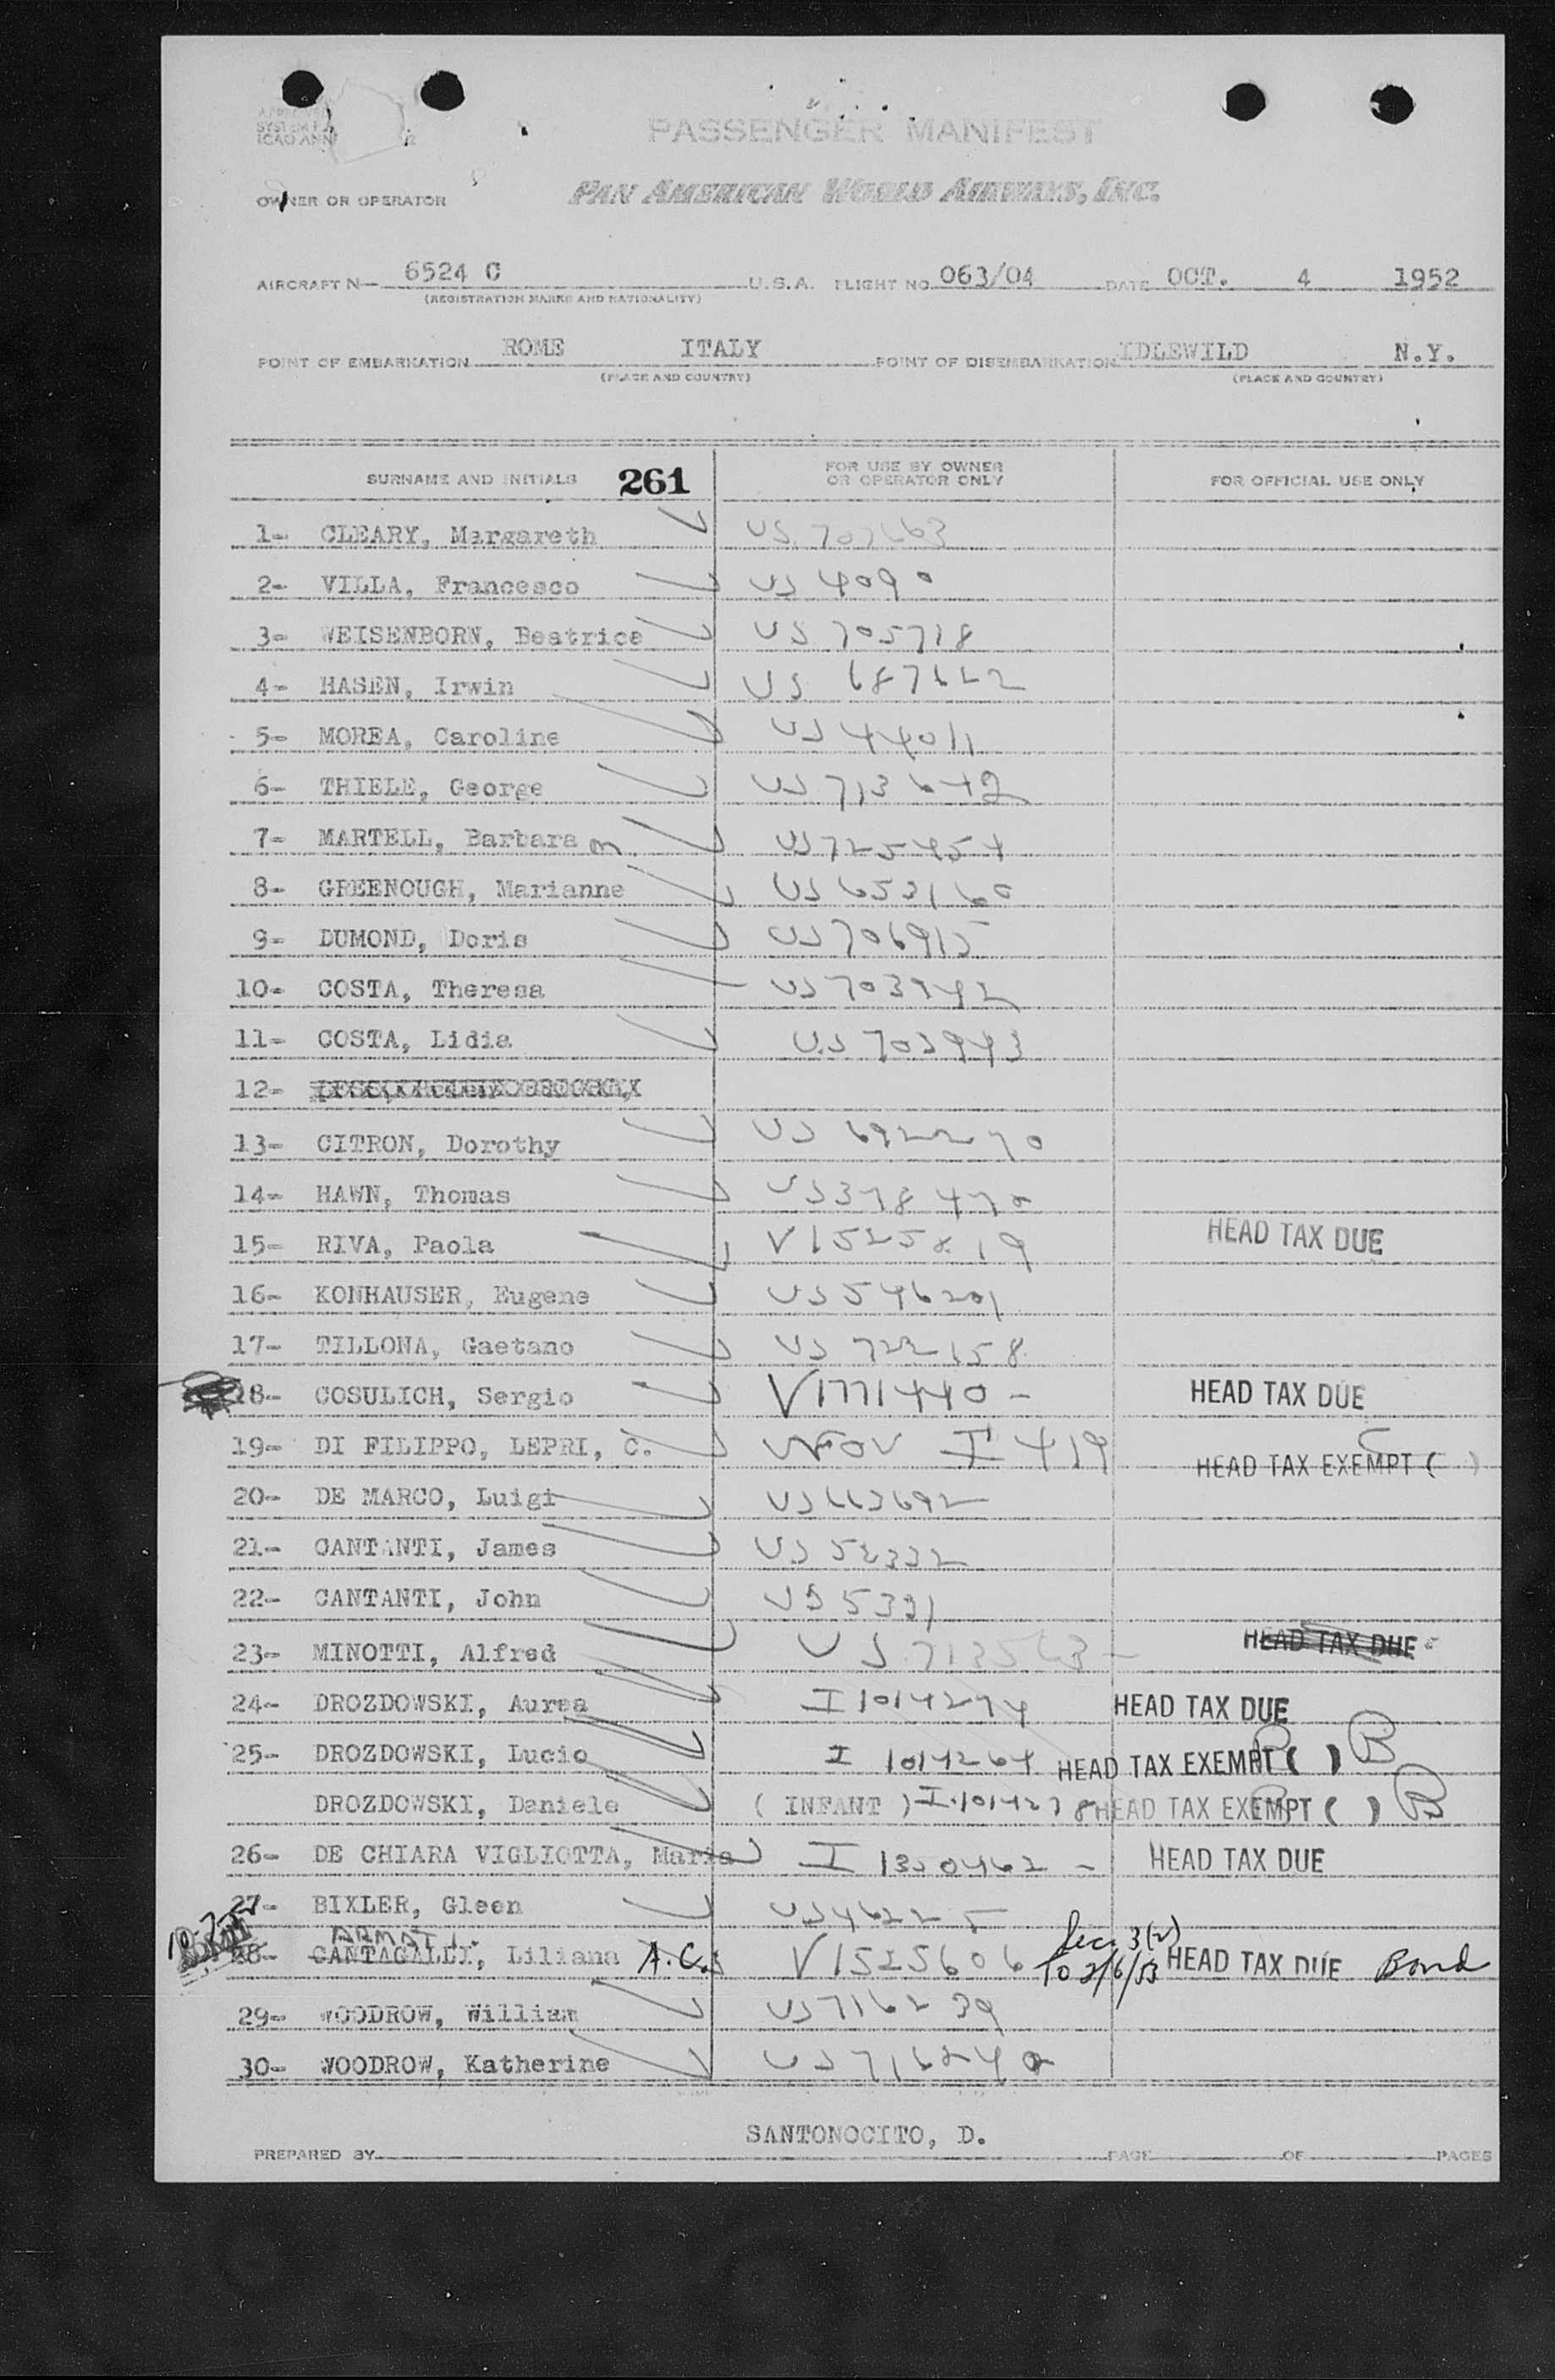 PASSENGER MANIFEST
OWNER OR OPERATOR PAN AMERICAN WORLD AIRWAYS, INC.
AIRCRAFT N— 6524 C U.S.A. FLIGHT NO. 063/04 DATE OCT. 4 1952
(REGISTRATION MARKS AND NATIONALITY)
POINT OF EMBARKATION ROME ITALY POINT OF DISEMBARKATION IDLEWILD N.Y.
(PLACE AND COUNTRY) (PLACE AND COUNTRY)
SURNAME AND INITIALS 261 FOR USE BY OWNER OR OPERATOR ONLY FOR OFFICIAL USE ONLY
1- CLEARY, Margareth US 707663
2- VILLA, Francesco US 4090
3- WEISENBORN, Beatrice US 705718
4- HASEN, Irwin US 687642
5- MOREA, Caroline US 44011
6- THIELE, George US 713642
7- MARTELL, Barbara m US 725454
8- GREENOUGH, Marianne US 653160
9- DUMOND, Doris US 706915
10- COSTA, Theresa US 703942
11- COSTA, Lidia US 703943
12-
13- CITRON, Dorothy US 692270
14- HAWN, Thomas US 378470
15- RIVA, Paola V 1525819 HEAD TAX DUE
16- KONHAUSER, Eugene US 546201
17- TILLONA, Gaetano US 722158
18- COSULICH, Sergio V 1771440 - HEAD TAX DUE
19- DI FILIPPO, LEPRI, C. I 419 HEAD TAX EXEMPT ( )
20- DE MARCO, Luigi US 663692
21- CANTANTI, James US 52332
22- CANTANTI, John US 5331
23- MINOTTI, Alfred US 713563 - HEAD TAX DUE
24- DROZDOWSKI, Aurea I 1014274 HEAD TAX DUE
25- DROZDOWSKI, Lucio I 1014264 HEAD TAX EXEMPT ( ) B
DROZDOWSKI, Daniele ( INFANT ) I 1014278 HEAD TAX EXEMPT ( ) B
26- DE CHIARA VIGLIOTTA, Maria I 1350462 - HEAD TAX DUE
27- BIXLER, Gleen US 46225
ARMATI
28- CANTAGALLI, Liliana A.C. V 1525606 Sec. 3(2) to 2/6/53 HEAD TAX DUE Bond
29- WOODROW, William US 716239
30- WOODROW, Katherine US 716240
SANTONOCITO, D.
PREPARED BY PAGE OF PAGES